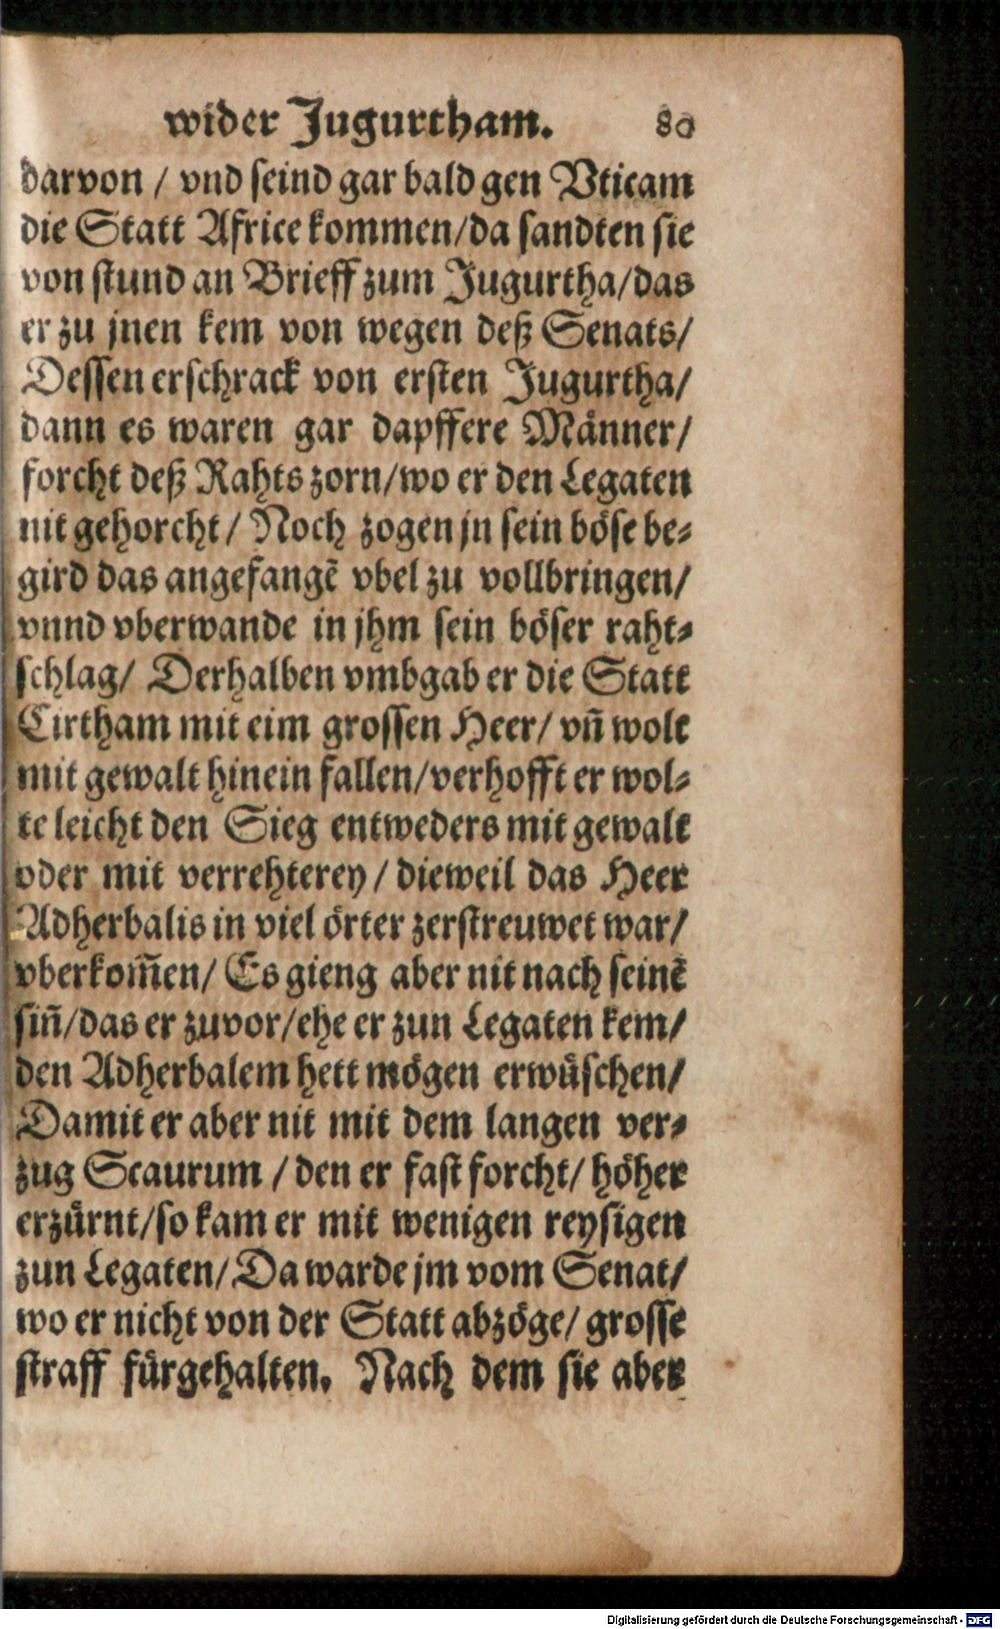 wider Jugurtham. 80
darvon / vnd seind gar bald gen Vticam
die Statt Africe kommen/da sandten sie
von stund an Brieff zum Jugurtha/das
er zu jnen kem von wegen deß Senats/
Dessen erschrack von ersten Jugurtha/
dann es waren gar dapffere Männer/
forcht deß Rahts zorn/wo er den Legaten
nit gehorcht/ Noch zogen jn sein böse be-
gird das angefangẽ vbel zu vollbringen/
vnnd vberwande in jhm sein böser raht-
schlag/ Derhalben vmbgab er die Statt
Cirtham mit eim grossen Heer/ vñ wolt
mit gewalt hinein fallen/verhofft er wol-
te leicht den Sieg entweders mit gewalt
oder mit verrehterey / dieweil das Heer
Adherbalis in viel örter zerstreuwet war/
vberkom̃en/ Es gieng aber nit nach seinẽ
siñ/das er zuvor/ehe er zun Legaten kem/
den Adherbalem hett mögen erwüschen/
Damit er aber nit mit dem langen ver-
zug Scaurum / den er fast forcht/ höher
erzürnt/so kam er mit wenigen reysigen
zun Legaten/Da warde jm vom Senat/
wo er nicht von der Statt abzöge/ grosse
straff fürgehalten. Nach dem sie aber
Digitalisierung gefördert durch die Deutsche Forschungsgemeinschaft - DFG